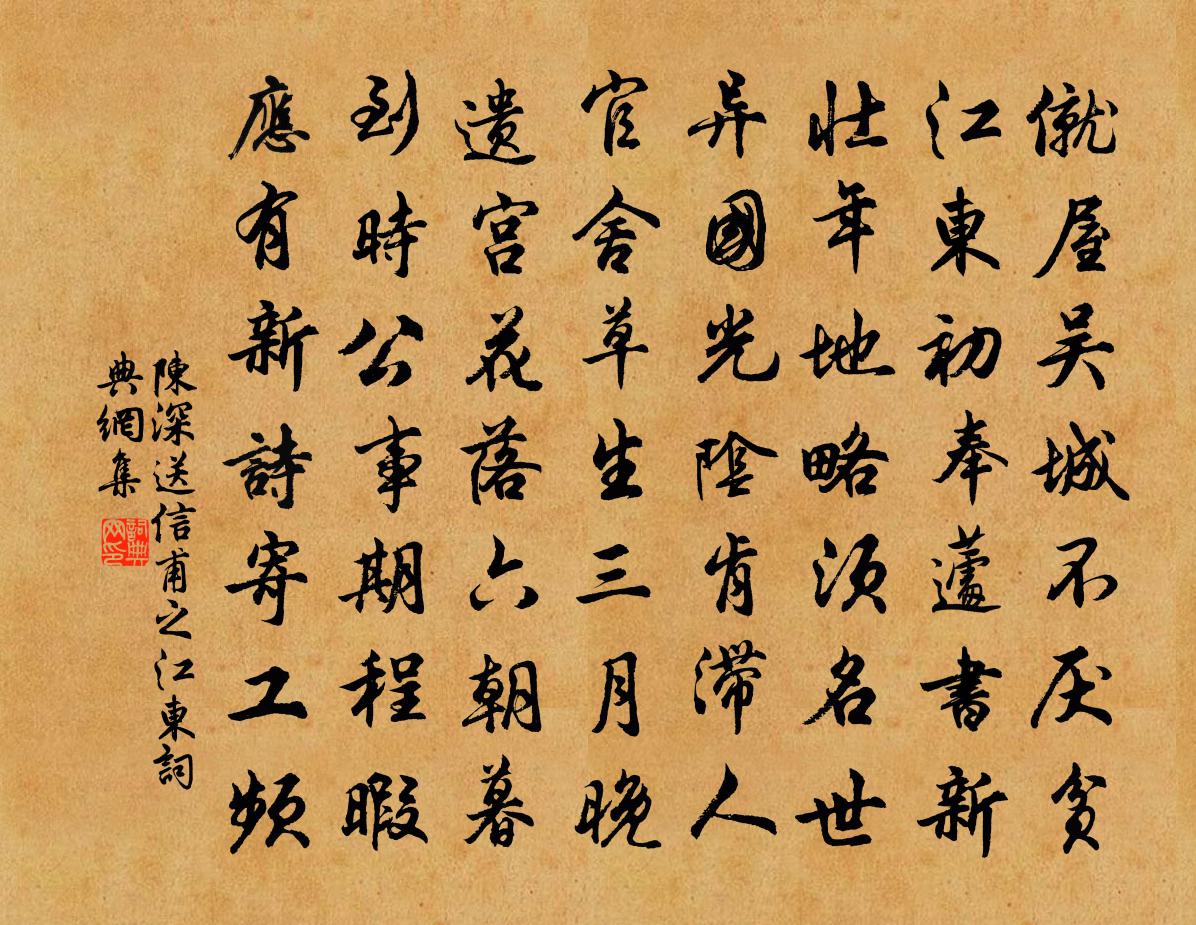 僦屋吴城不厌貧
江東初奉蘧書新
壮年地略須名世
异國光陰肯滞人
官舍草生三月晚
遗宫花落六朝暮
到時公事期程暇
應有新詩寄工頻
陳深送信甫之江東詞
典網集
詞典
网印